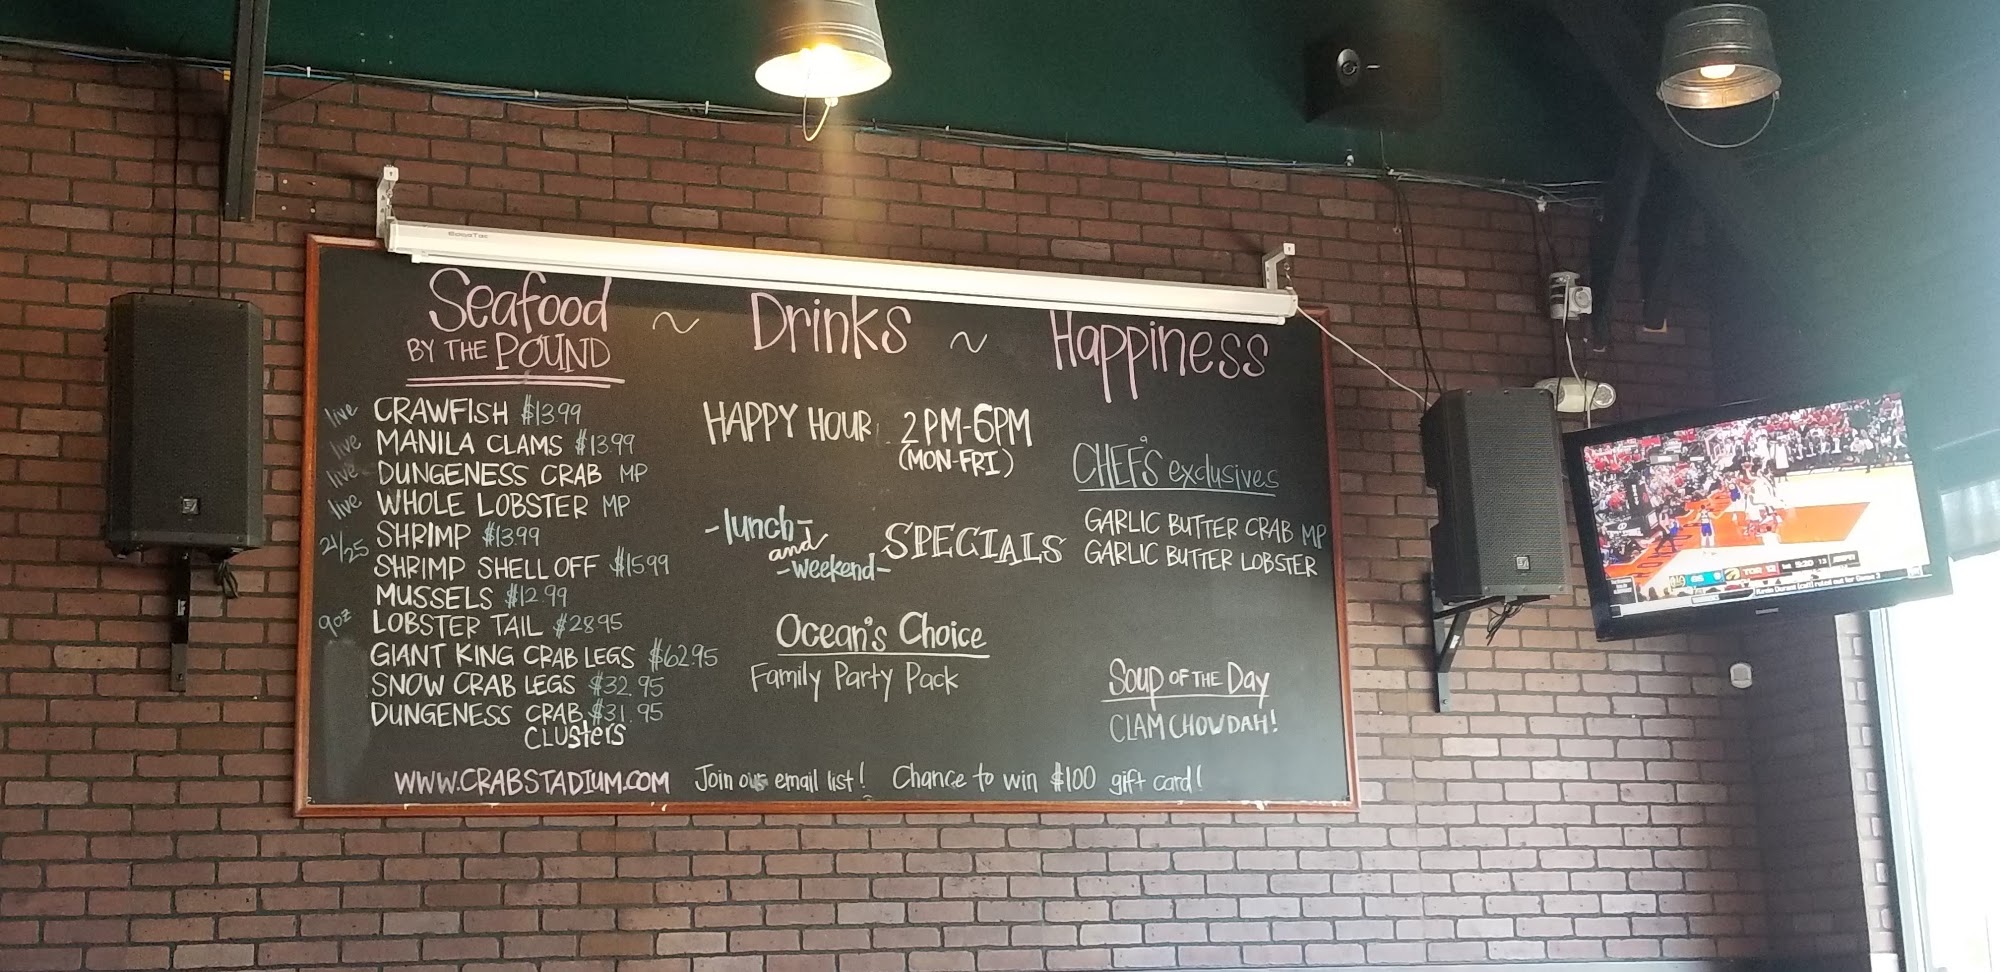 Seafood ~ Drinks ~ Happiness
BY THE POUND
live CRAWFISH $13.99
live MANILA CLAMS $13.99
live DUNGENESS CRAB MP
live WHOLE LOBSTER MP
21/25 SHRIMP $13.99
SHRIMP SHELL OFF $15.99
MUSSELS $12.99
9oz LOBSTER TAIL $28.95
GIANT KING CRAB LEGS $62.95
SNOW CRAB LEGS $32.95
DUNGENESS CRAB $31.95
CLUSTERS
HAPPY HOUR 2PM-6PM
(MON-FRI)
-lunch-
and
-weekend-
SPECIALS
Ocean's Choice
Family Party Pack
CHEF'S exclusives
GARLIC BUTTER CRAB MP
GARLIC BUTTER LOBSTER
SOUP OF THE DAY
CLAM CHOWDAH!
WWW.CRABSTADIUM.COM Join our email list! Chance to win $100 gift card!
TOR 12 1st 9:20 13 ESPN
Kevin Durant (calf) ruled out for Game 3
SAMSUNG